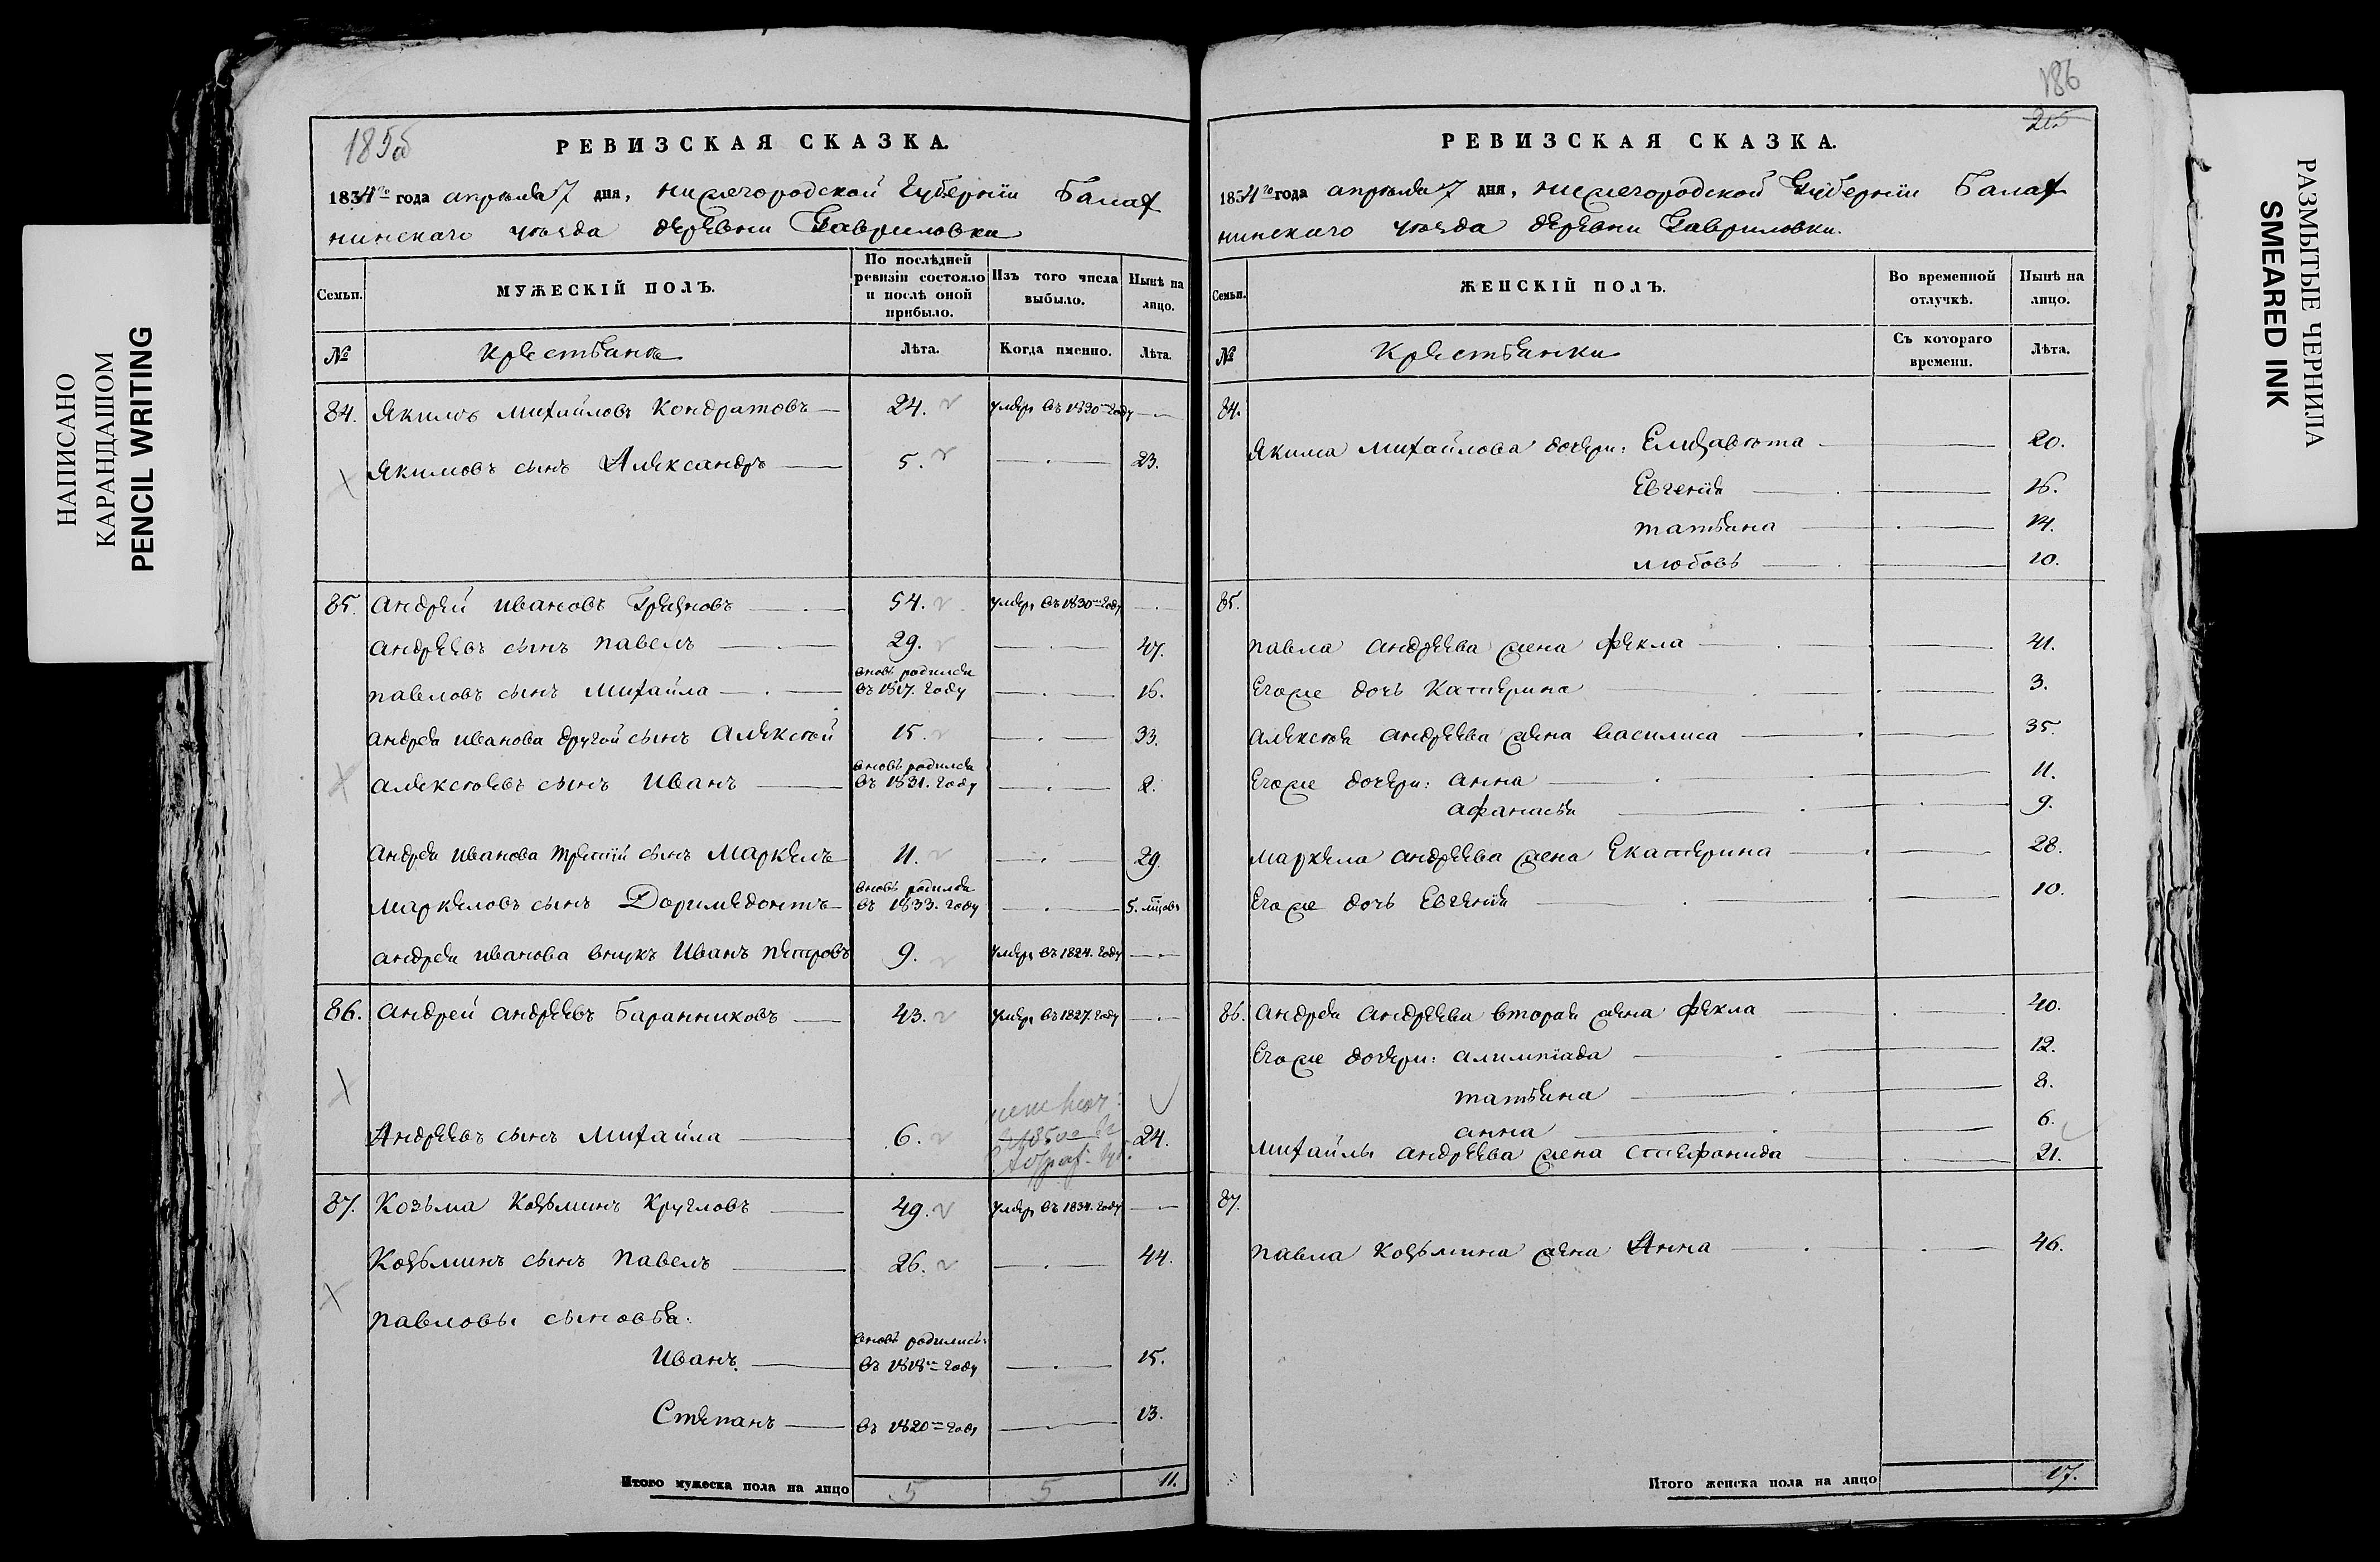 НАПИСАНО
КАРАНДАШОМ
PENCIL WRITING
185об
РЕВИЗСКАЯ СКАЗКА.
1834го года апреля 7 дня, нижегородской Губернiи Балах
нинскаго уѣзда деревни Гавриловки
Семьи.
МУЖЕСКIЙ ПОЛЪ.
По послѣдней ревизiи состояло и послѣ оной прибыло.
Изъ того числа выбыло.
Нынѣ на лицо.
№
Крестьяне
Лѣта.
Когда именно.
Лѣта.
84. Якимъ Михайловъ Кондратовъ 24. умеръ въ 1830м Году
Якимовъ сынъ Александръ 5. 23.
85. Андрей Ивановъ Грезновъ 54. умеръ въ 1830м Году
Андреевъ сынъ Павелъ 29. 47.
Павловъ сынъ Михайла вновь родился въ 1817. Году 16.
Андрея Иванова другой сынъ Алексѣй 15. 33.
Алексѣевъ сынъ Иванъ вновь родился въ 1831. Году 2.
Андрея Иванова третiй сынъ Маркелъ 11. 29.
Маркеловъ сынъ Доримедонтъ вновь родился въ 1833. Году 5. мцовъ
Андрея Иванова внукъ Иванъ Петровъ 9. умеръ въ 1824. Году
86. Андрей Андреевъ Баранниковъ 43. умеръ въ 1827. Году
Андреевъ сынъ Михайла 6. 24.
87. Козьма Козьминъ Кругловъ 49. умеръ въ 1834. Году
Козьминъ сынъ Павелъ 26. 44.
Павловы сыновья:
Иванъ вновь родились: въ 1818м Году 15.
Степанъ въ 1820м Году 13.
Итого мужеска пола на лицо 5 5 11.
186
РЕВИЗСКАЯ СКАЗКА.
1834го года апреля 7 дня, нижегородской Губернiи Балах
нинскаго уѣзда деревни Гавриловки.
Семьи.
ЖЕНСКIЙ ПОЛЪ.
Во временной отлучкѣ.
Нынѣ на лицо.
№
Крестьянки
Съ котораго времени.
Лѣта.
84.
Якима Михайлова дочери: Елизавета 20.
Евгенiя 16.
Татьяна 14.
Любовь 10.
85.
Павла Андреева жена Фекла 41.
Егоже дочь Катерина 3.
Алексѣя Андреева жена Василиса 35.
Егоже дочери: Анна 11.
Афанасья 9.
Маркела Андреева жена Екатерина 28.
Егоже дочь Евгенiя 10.
86. Андрея Андреева вторая жена Фекла 40.
Егоже дочери: Алимпiада 12.
Татьяна 8.
Анна 6.
Михайлы Андреева жена Стефанида 21.
87.
Павла Козьмина жена Анна 46.
Итого женска пола на лицо 17.
РАЗМЫТЫЕ ЧЕРНИЛА
SMEARED INK